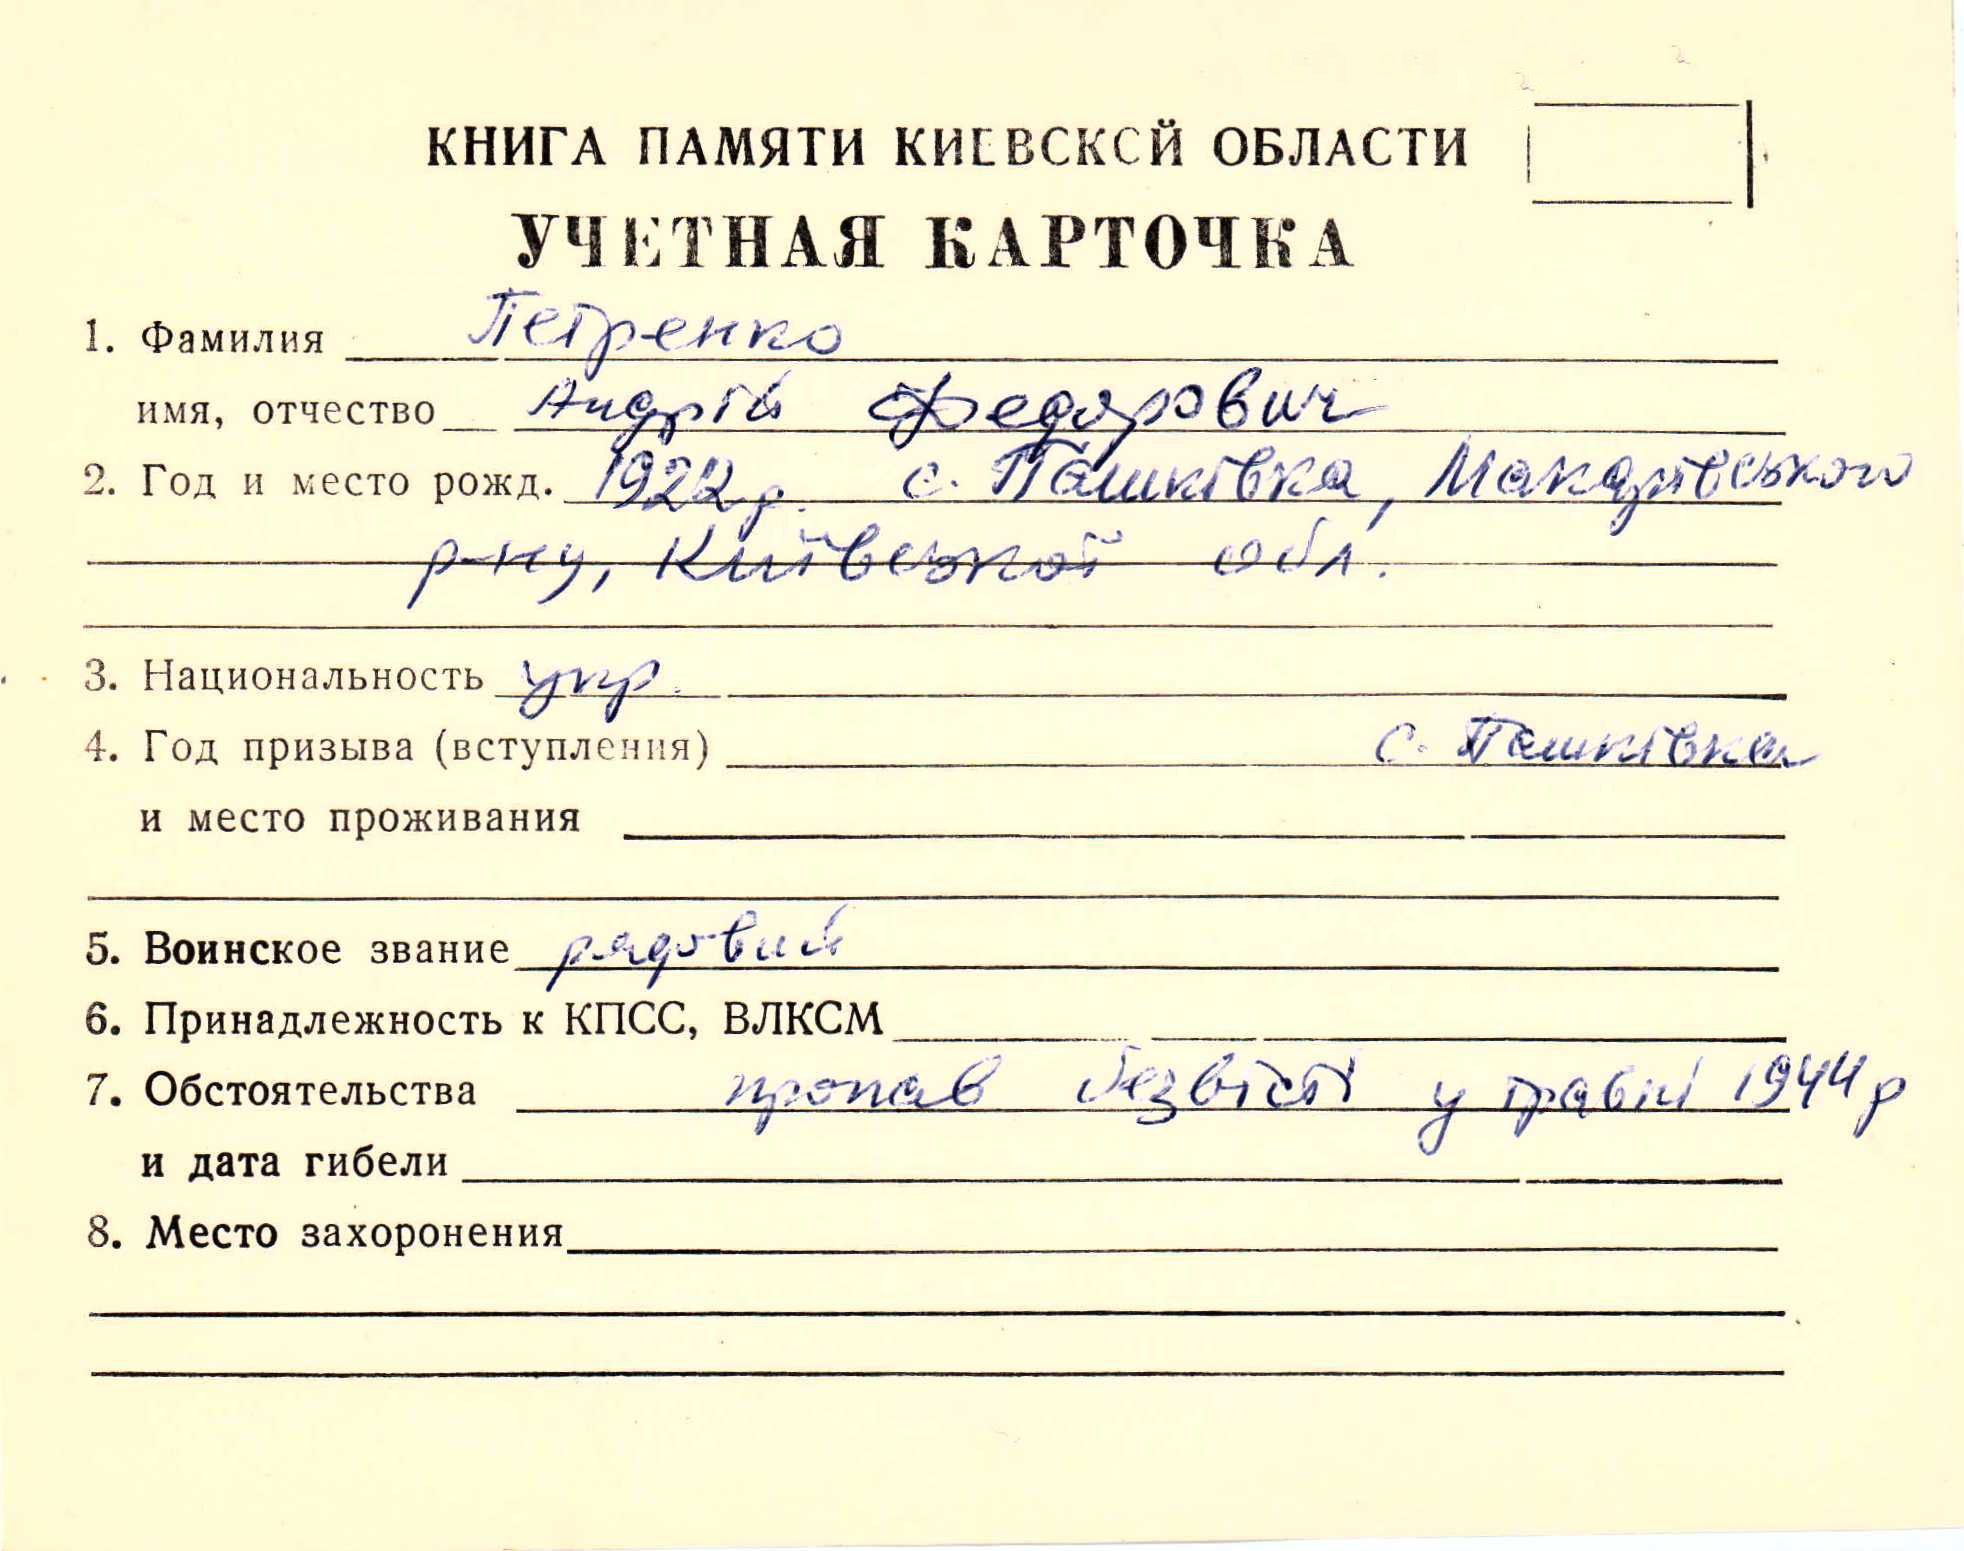 КНИГА ПАМЯТИ КИЕВСКОЙ ОБЛАСТИ
УЧЕТНАЯ КАРТОЧКА
1. Фамилия Петренко
имя, отчество Андрій Федорович
2. Год и место рожд. 1922 р. с. Пашківка, Макарівського
р-ну, Київської обл.
3. Национальность укр.
4. Год призыва (вступления) с. Пашківка
и место проживания
5. Воинское звание рядовий
6. Принадлежность к КПСС, ВЛКСМ
7. Обстоятельства пропав безвісті у травні 1944 р
и дата гибели
8. Место захоронения